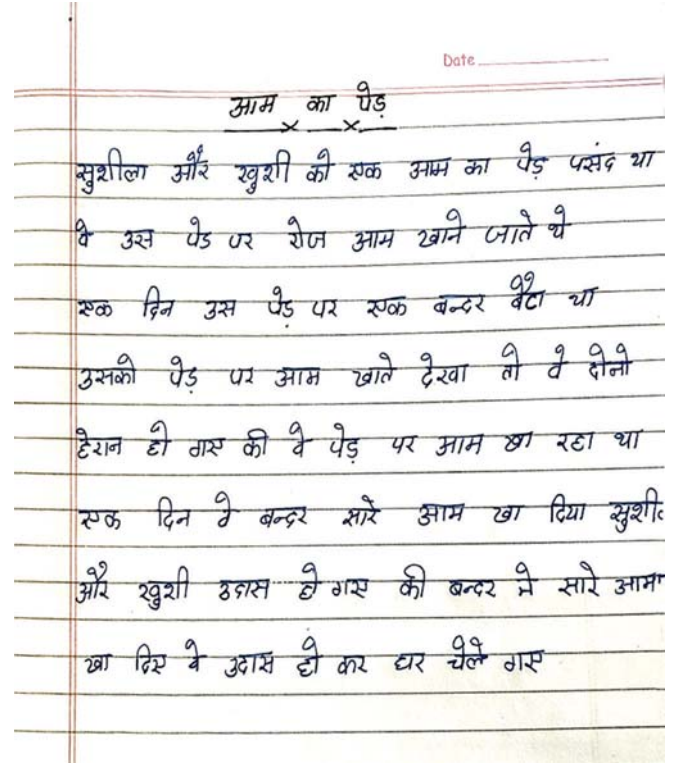 Date
आम का पेड़
सुशीला और खुशी को एक आम का पेड़ पसंद था
वे उस पेड पर रोज आम खाने जाते थे
एक दिन उस पेड़ पर एक बन्दर बैटा था
उसको पेड़ पर आम खाते देखा तो वे दोनो
हैरान हो गए की वे पेड़ पर आम खा रहा था
एक दिन वे बन्दर सारे आम खा दिया सुशील
और खुशी उदास हो गए की बन्दर ने सारे आमा
खा दिए वे उदास हो कर घर चेले गए